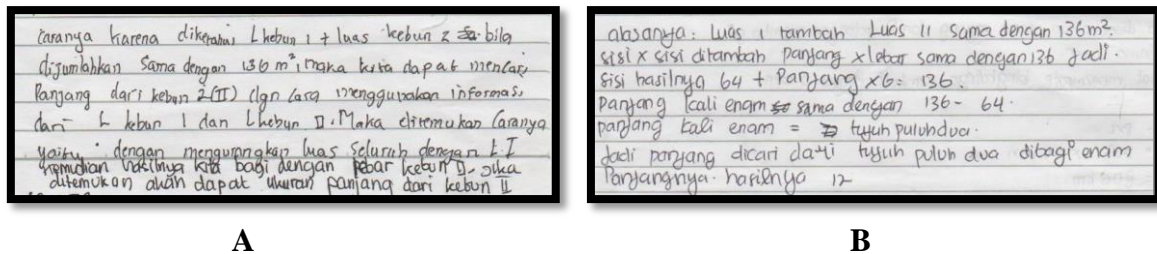 Caranya karena diketahui L kebun 1 + luas kebun 2 bila
dijumlahkan sama dengan 136 m², maka kita dapat mencari
Panjang dari kebun 2 (II) dgn cara menggunakan informasi
dari L kebun I dan L kebun II. Maka ditemukan Caranya
yaitu dengan mengurangkan luas seluruh dengan L I
kemudian hasilnya kita bagi dengan lebar kebun II. Jika
ditemukan akan dapat ukuran panjang dari kebun II
A
alasanya: Luas 1 tambah Luas 11 sama dengan 136 m².
sisi x sisi ditambah panjang x lebar sama dengan 136 Jadi.
sisi hasilnya 64 + Panjang x 6 = 136.
panjang kali enam sama dengan 136 - 64.
panjang kali enam = tujuh puluh dua.
Jadi panjang dicari dari tujuh puluh dua dibagi enam
Panjangnya. hasilnya 12
B